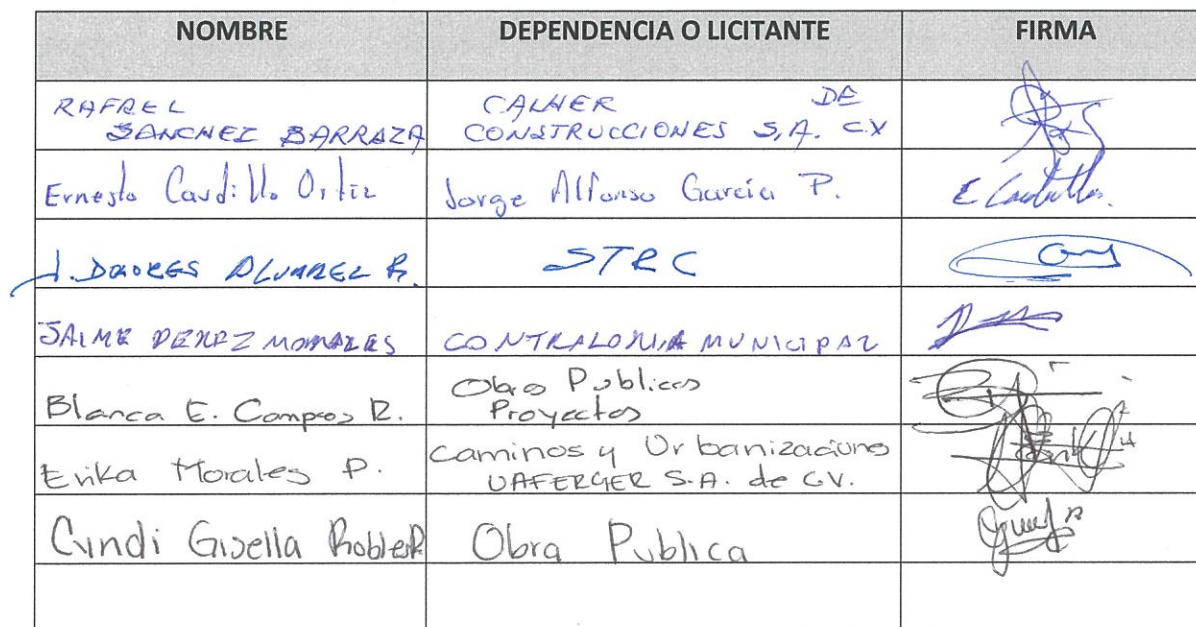 NOMBRE DEPENDENCIA O LICITANTE FIRMA
RAFAEL CALHER DE
SANCHEZ BARRAZA CONSTRUCCIONES S.A. CV
Ernesto Caudillo Ortiz Jorge Alfonso García P.
J. DOLORES ALVAREZ R. STRC
JAIME PEREZ MORALES CONTRALORIA MUNICIPAL
Blanca E. Campos R. Obras Publicas
Proyectos
Erika Morales P. Caminos y Urbanizaciones
VAFERGER S.A. de C.V.
Cyndi Gisella Robles R Obra Publica